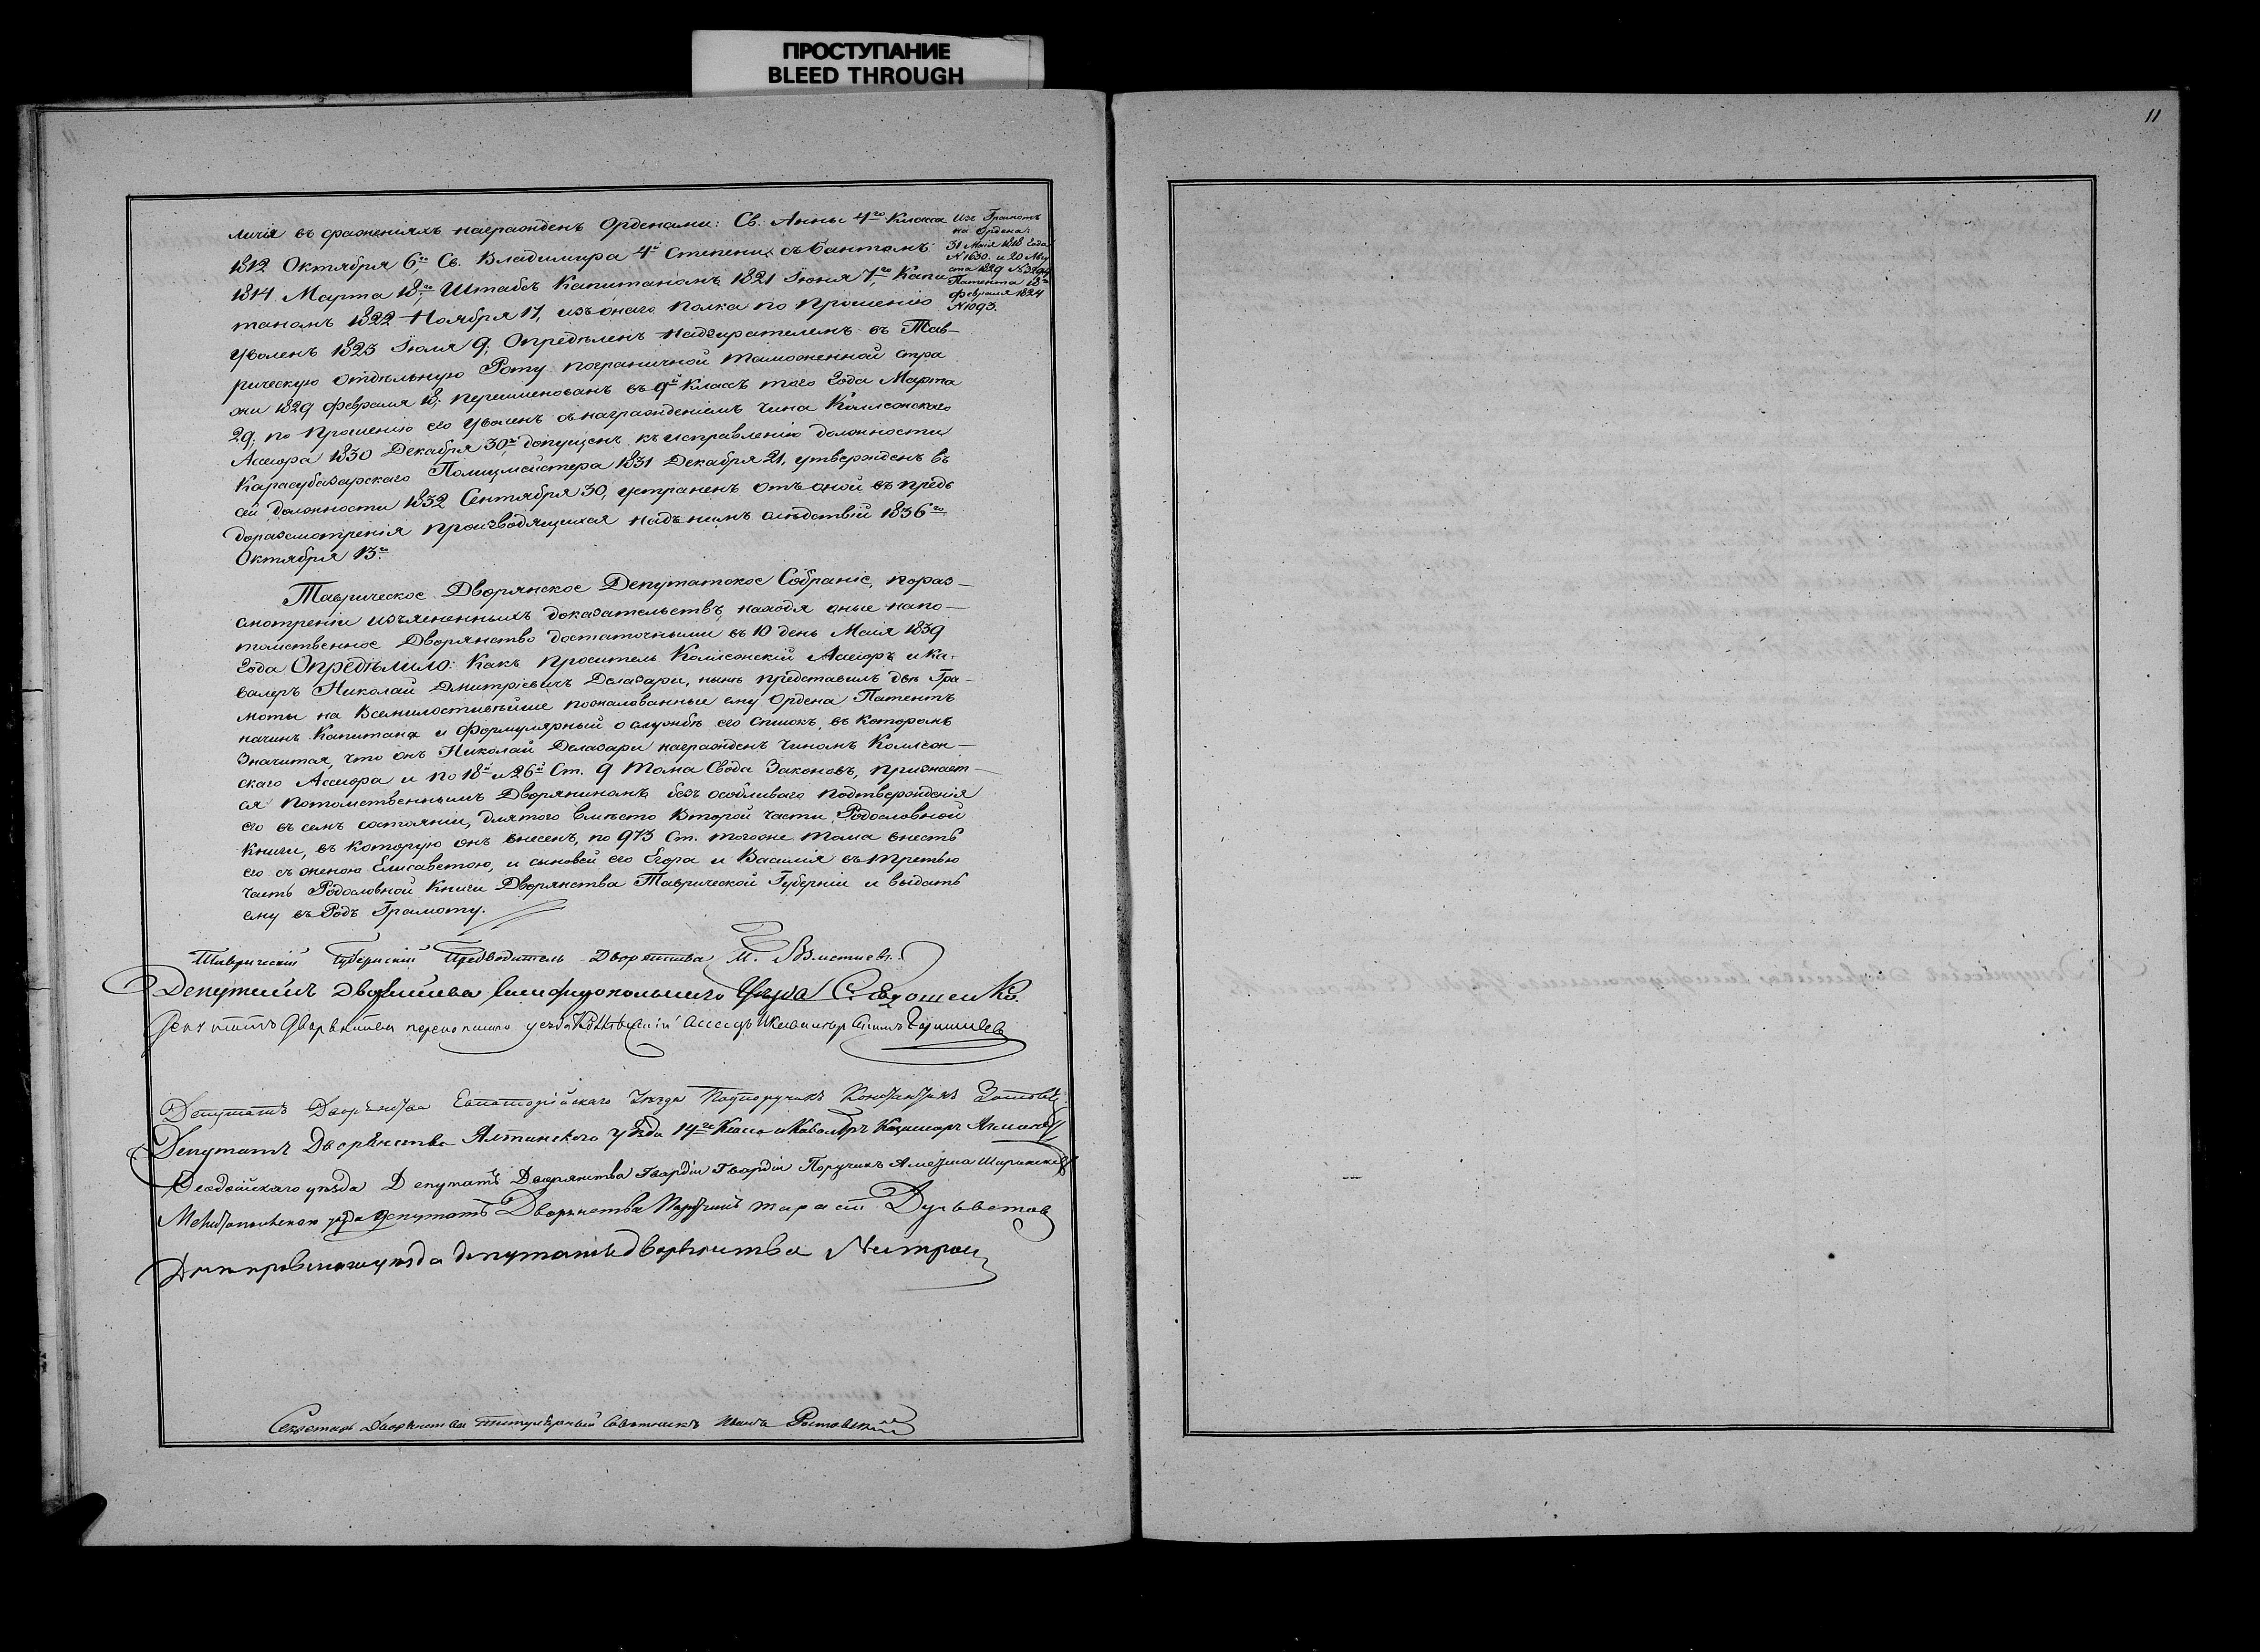 ПРОСТУПАНИЕ
BLEED THROUGH
11
личія въ сраженіяхъ награжденъ Орденами: Св. Анны 4го Класса
1812 Октября 6го, Св. Владимира 4й Степени съ бантомъ
1814 Марта 18го, Штабсъ Капитаномъ 1821 Іюня 7го, Капи
таномъ 1822 Ноября 17, изъ онаго полка по прошенію
уволенъ 1823 Іюля 9; Опредѣленъ Надзирателемъ въ Тав-
рическую отдѣльную Роту пограничной таможенной стра
жи 1829 Февраля 18; переименованъ въ 9й Классъ того Года Марта
29; по прошенію его уволенъ съ награжденіемъ чина Коллежскаго
Ассесора 1830 Декабря 30го, допущенъ къ исправленію должности
Карасубазарскаго Полицмейстера 1831 Декабря 21, утвержденъ въ
сей должности 1832 Сентября 30, устраненъ отъ оной въ предь
до разсмотренія производящихся надъ нимъ слѣдствій 1836го
Октября 13го
Изъ Грамотъ
на Ордена:
31 Маія 1818 Года
N 1630. и 20 Авгу
ста 1829 N
Патента 18го
Февраля 1824
N 1093.
Таврическое Дворянское Депутатское Собраніе, по раз-
смотреніи изъясненныхъ доказательствъ, находя оные на по-
томственное Дворянство достаточными въ 10 день Маія 1839
Года Опредѣлило: Какъ проситель Коллежскій Ассесоръ и Ка-
валеръ Николай Дмитріевичъ Делазари, нынѣ представилъ двѣ Гра-
моты на Всемилостивѣйше пожалованные ему Ордена Патентъ
на чинъ Капитана и Формулярный о службѣ его списокъ, въ которомъ
Значится, что онъ Николай Делазари награжденъ чиномъ Коллеж-
скаго Ассесора и по 18й и 26й Ст. 9 Тома Свода Законовъ, признает-
ся потомственнымъ Дворяниномъ безъ особливаго подтвержденія
его въ семъ состояніи, для того вмѣсто Второй части Родословной
Книги, въ которую онъ внесенъ, по 973 Ст. тогоже тома внесть
его съ женою Елисаветою, и сыновей его Егора и Василія въ третью
часть Родословной Книги Дворянства Таврической Губерніи и выдать
ему въ Родъ Грамоту.
Таврическій Губернскій Предводитель Дворянства М.
Депутатъ Дворянства Симферопольскаго Уѣзда С.
Депутатъ Дворянства перекопскаго уезда
Депутатъ Дворянства Евпаторійскаго Уѣзда Подпоручикъ Константинъ
Депутатъ Дворянства Ялтинскаго уѣзда 14го Класа и Кавалеръ
Феодосійскаго уѣзда Депутатъ Дворянства Гвардіи Поручикъ Аметша Ширинскій
Мелитопольскаго уѣзда Депутатъ Дворянства Поручикъ
Днѣпровскаго уѣзда депутатъ дворянства
Секретарь Дворянства Титулярный Совѣтникъ Иванъ Ростовскій